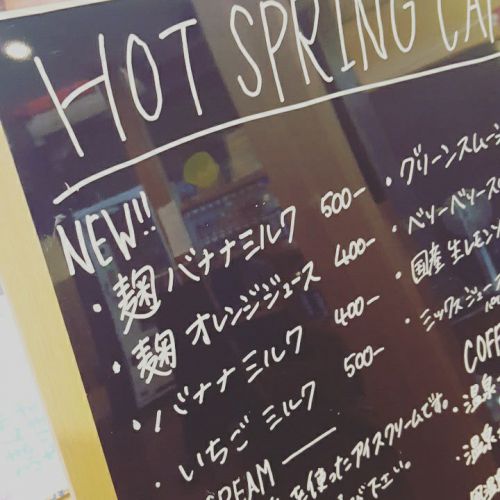 HOT SPRING
NEW!!
・麹 バナナミルク 500-
・麹 オレンジジュース 400-
・バナナミルク 400-
・いちごミルク 500-
・グリーンスムー
・ベリーベリース
・国産 生レモン
・ミックスジュース
COFF
・温泉
・温泉
CREAM
を使ったアイスクリームです。